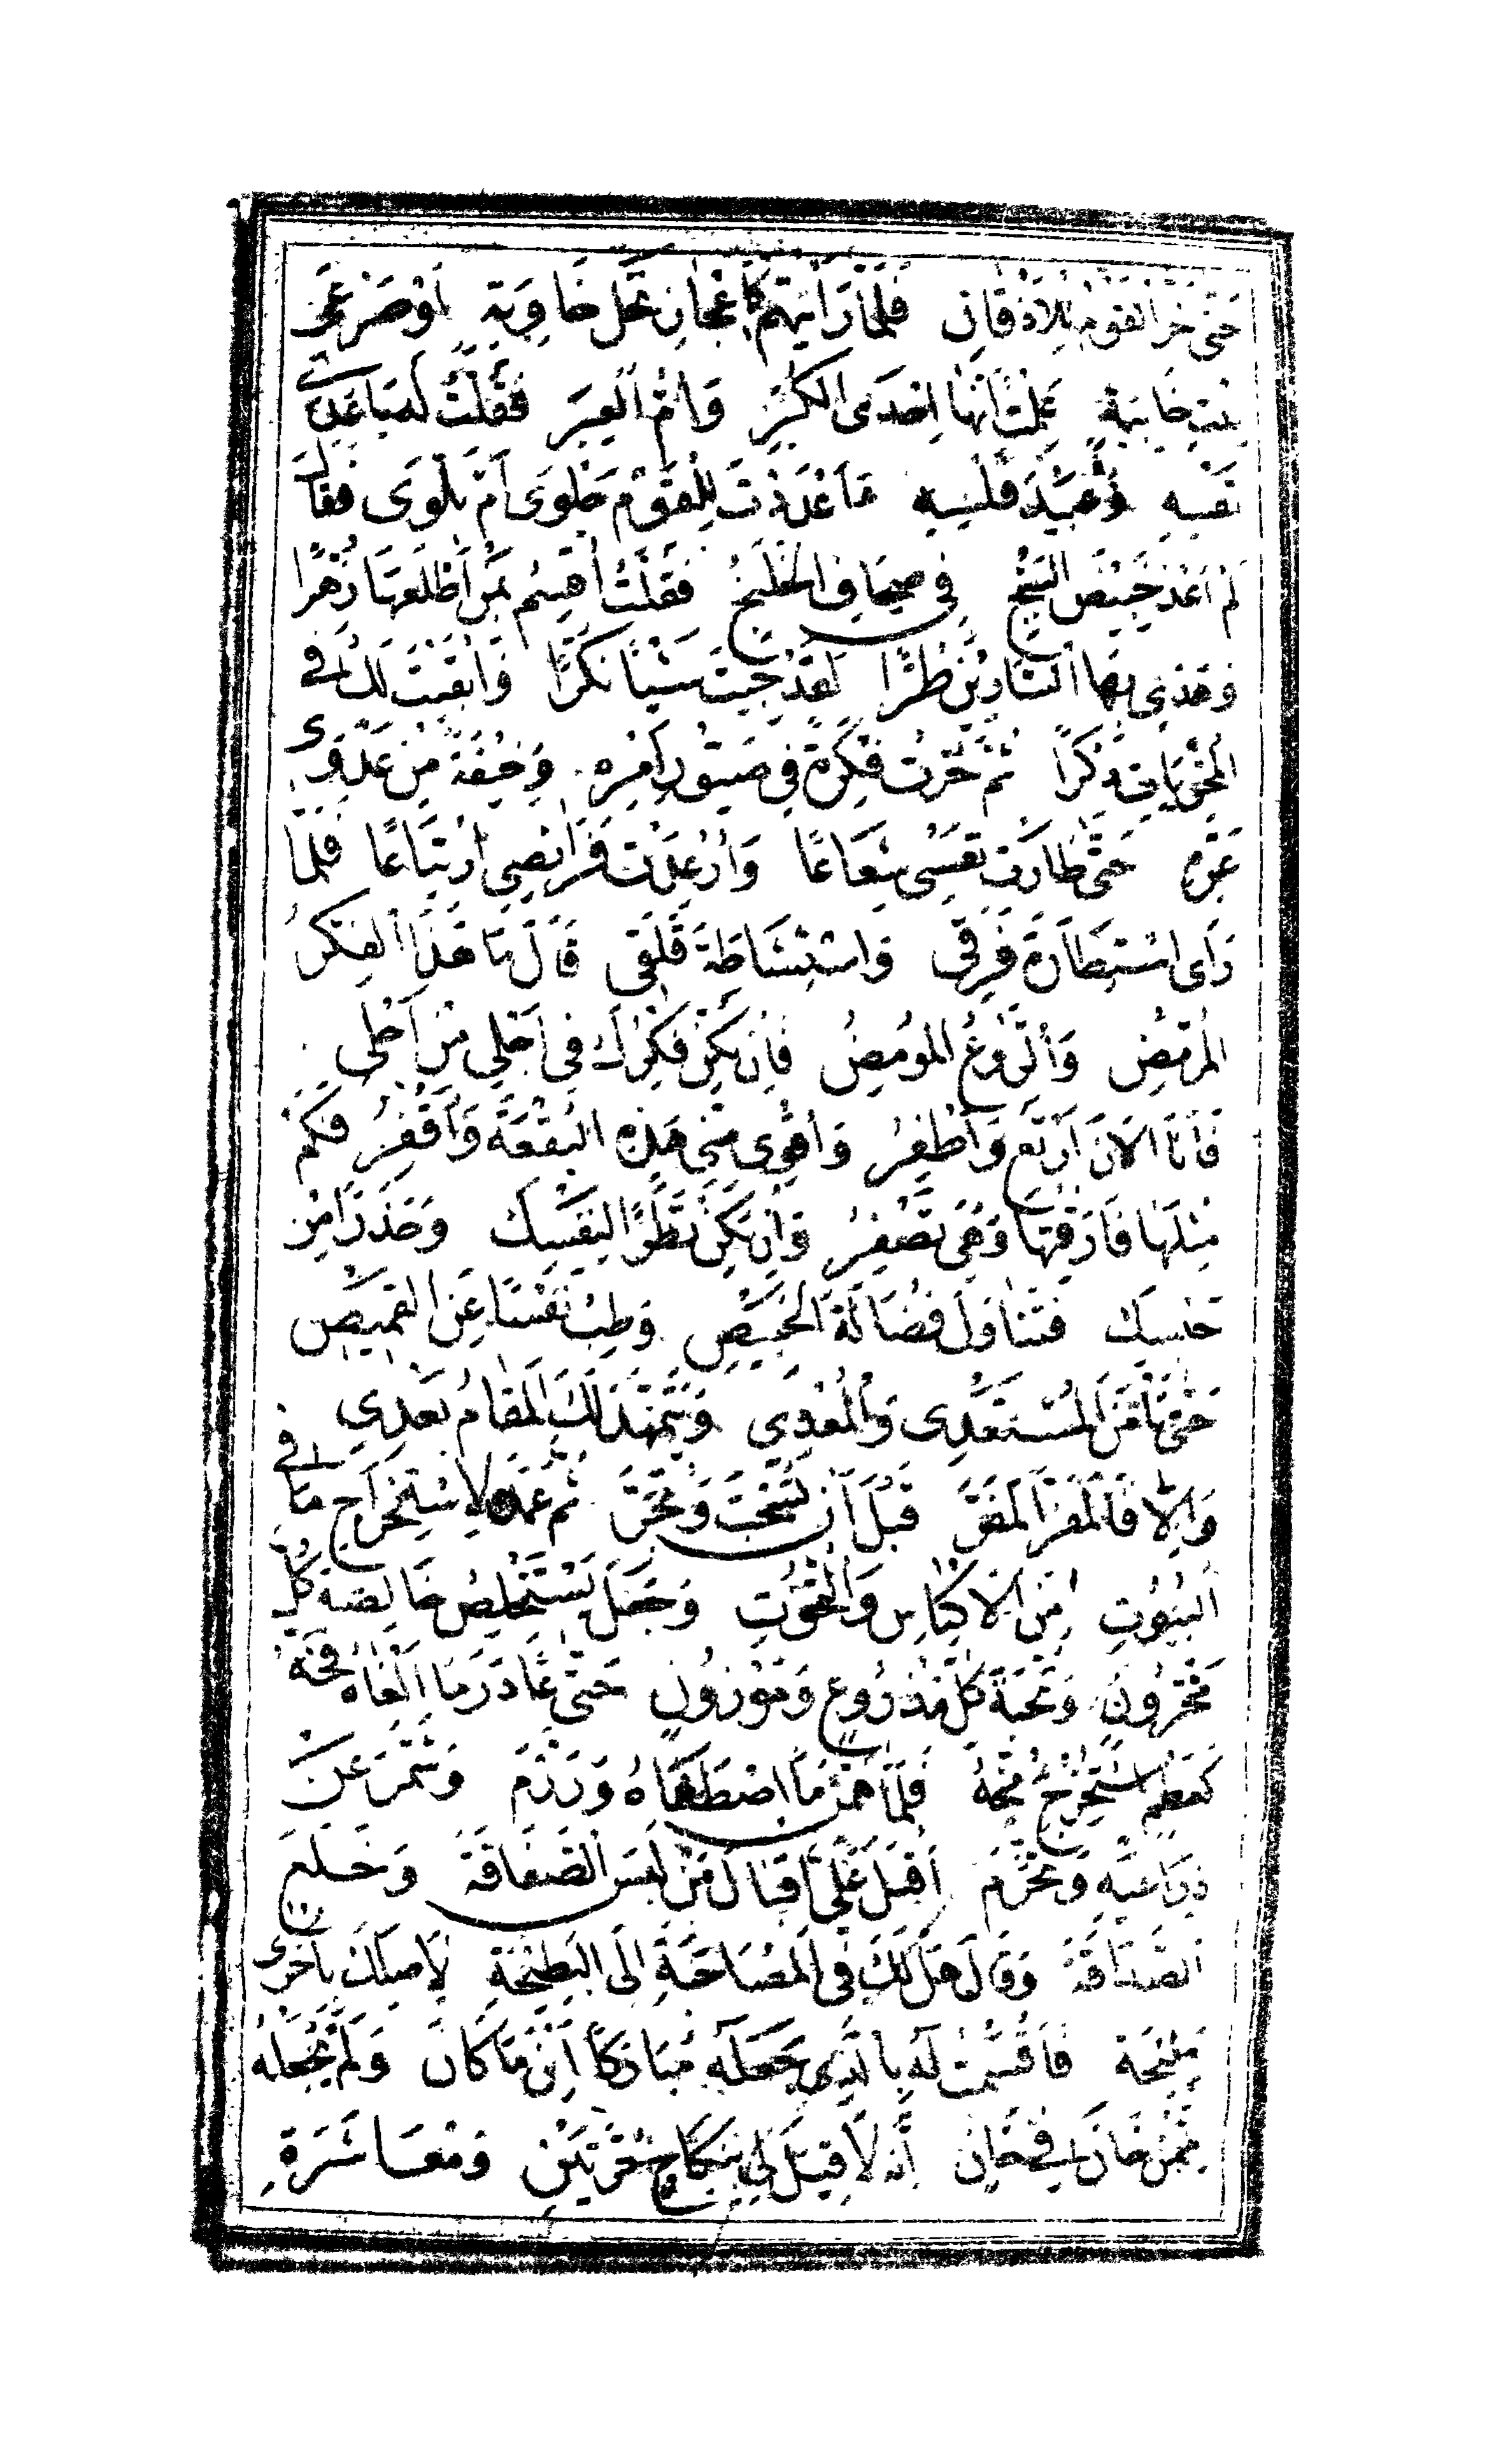 حَتَّى خَرَّ القَوْمُ لِلْأَذْقَانِ فَلَمَّا رَأَيْتُهُمْ كَأَعْجَازِ نَخْلٍ خَاوِيَةٍ أَوْ صَرْعَى
بِنْتِ خَابِيَةٍ عَلِمْتُ أَنَّهَا إِحْدَى الكُبَرِ وَأُمُّ العِبَرِ فَقُلْتُ لَهُ يَا عُدَيَّ
نَفْسِهِ وَعُبَيْدَ فَلْسِهِ أَعْدَدْتَ لِلْقَوْمِ حَلْوَى أَمْ بَلْوَى فَقَالَ
لَمْ أَعْدُ خَبِيصَ البَنْجِ فِي صِحَافِ الخَلَنْجِ فَقُلْتُ أُقْسِمُ بِمَنْ أَطْلَعَهَا زُهْرًا
وَهَدَى بِهَا السَّارِينَ طُرًّا لَقَدْ جِئْتَ شَيْئًا نُكْرًا وَأَبْقَيْتَ لَكَ فِي
المُخْزِيَاتِ ذِكْرًا ثُمَّ حِرْتُ فِكْرَةً فِي صَيُّورِ أَمْرِهِ وَخِيفَةً مِنْ عَدْوَى
عَرِّهِ حَتَّى طَارَتْ نَفْسِي شَعَاعًا وَأُرْعِدَتْ فَرَائِصِي ارْتِيَاعًا فَلَمَّا
رَأَى اسْتِطَارَةَ فَرَقِي وَاسْتِشَاطَةَ قَلَقِي قَالَ مَا هَذَا الفِكْرُ
المُرْمِضُ وَالرَّوْعُ المُومِضُ فَإِنْ يَكُنْ فِكْرُكَ فِي أَجْلِي مِنْ أَجْلِي
فَأَنَا الآنَ أَرْتَعُ وَأَطْفِرُ وَأُقْوِي مِنِّي هَذِهِ البُقْعَةَ وَأُقْفِرُ فَكَمْ
مِثْلِهَا فَارَقْتُهَا وَهِيَ تَصْفِرُ وَإِنْ يَكُنْ نَظَرًا لِنَفْسِكَ وَحَذَرًا مِنْ
حَبْسِكَ فَتَنَاوَلْ فُضَالَةَ الخَبِيصِ وَطِبْ نَفْسًا عَنِ القَمِيصِ
حَتَّى تَأْمَنَ المُسْتَعْدِي وَالمُعْدِي وَيَتَمَهَّدَ لَكَ المُقَامُ بَعْدِي
وَإِلَّا فَالمَفَرَّ المَفَرَّ قَبْلَ أَنْ تُسْحَبَ وَتُجَرَّ ثُمَّ عَمَدَ لِاسْتِخْرَاجِ مَا فِي
البُيُوتِ مِنَ الأَكْيَاسِ وَالتُّخُوتِ وَجَعَلَ يَسْتَخْلِصُ خَالِصَةَ كُلِّ
مَخْزُونٍ وَنُخْبَةَ كُلِّ مَذْرُوعٍ وَمَوْزُونٍ حَتَّى غَادَرَ مَا أَلْغَاهُ فَخُّهُ
كَعَظْمٍ اسْتُخْرِجَ مُخُّهُ فَلَمَّا هَمَّنَ مَا اصْطَفَاهُ وَرَزَمَ وَشَمَّرَ عَنْ
ذِرَاعَيْهِ وَتَحَزَّمَ أَقْبَلَ عَلَيَّ إِقْبَالَ مَنْ لَبِسَ الصَّفَاقَةَ وَخَلَعَ
الصَّدَاقَةَ وَقَالَ هَلْ لَكَ فِي المُصَاحَبَةِ إِلَى البَطِيحَةِ لِأَصِلَكَ بِأُخْرَى
مَلِيحَةٍ فَأَقْسَمْتُ لَهُ بِالَّذِي جَعَلَهُ مُبَارَكًا أَيْنَمَا كَانَ وَلَمْ يَجْعَلْهُ
مِمَّنْ خَانَ فِي خَانٍ أَنَّهُ لَا قِبَلَ لِي بِنِكَاحِ حُرَّتَيْنِ وَمُعَاشَرَةِ